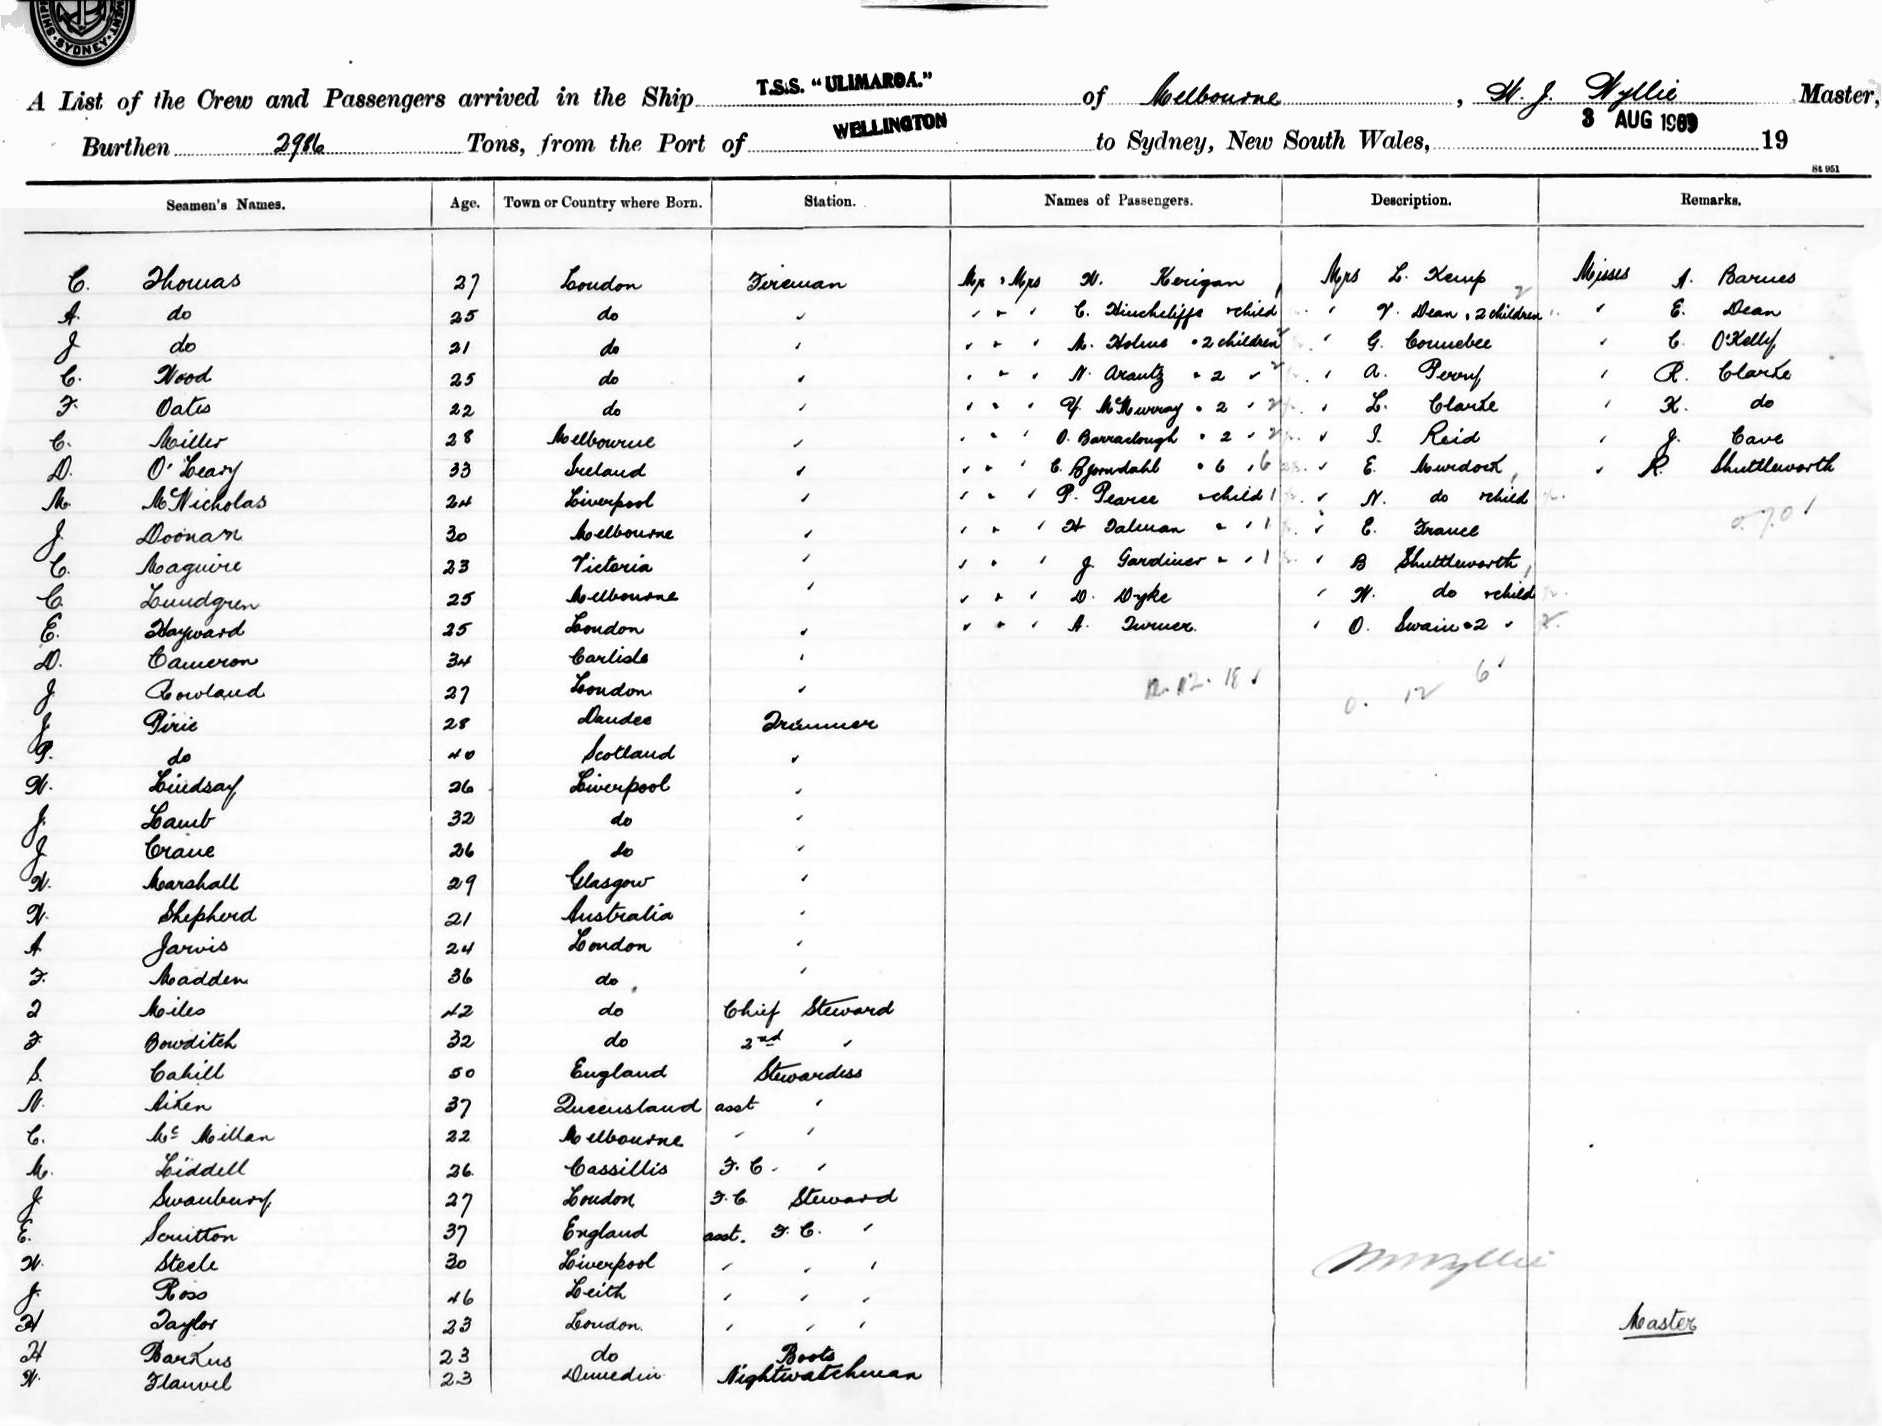 SHIPP MENT. SYDNEY
A List of the Crew and Passengers arrived in the Ship T.S.S. "ULIMAROA." of Melbourne, W. J. Wyllie Master,
Burthen 2986 Tons, from the Port of WELLINGTON to Sydney, New South Wales, 3 AUG 1909 19
St 951
Seamen's Names. Age. Town or Country where Born. Station. Names of Passengers. Description. Remarks.
C. Thomas 27 London Fireman Mr & Mrs W. Kerigan Mrs L. Kemp Misses A. Barnes
A. do 25 do " " " " C. Hinchcliffe & child " V. Dean & 2 children " E. Dean
J do 21 do " " " " M. Holms & 2 children " G. Connebee " C. O'Kelly
C. Wood 25 do " " " " N. Arautz & 2 " " A. Perry " R. Clarke
F. Oates 22 do " " " " Y. McMurray & 2 " " L. Clarke " K. do
C. Miller 28 Melbourne " " " " O. Barraclough & 2 " " I. Reid " J. Cave
D. O'Leary 33 Ireland " " " " C. Bjorndahl & 6 " 6 " E. Murdock " R. Shuttleworth
M. McNicholas 24 Liverpool " " " " P. Pearce & child 1 " N. do & child
J. Doonan 30 Melbourne " " " " H Talman & " 1 " E. France 0. 7. 0
C. Maguire 23 Victoria " " " " J Gardiner & " 1 " B Shuttleworth
C. Lundgren 25 Melbourne " " " " D. Dyke " W. do & child
E. Hayward 25 London " " " " A. Turner. " O. Swain & 2 "
D. Cameron 34 Carlisle "
J Rowland 27 London " 12. 12. 18 0. 12 6
J. Pirie 28 Dundee Trimmer
P. do 40 Scotland "
W. Lindsay 26 Liverpool "
J. Lamb 32 do "
J Crane 26 do "
W. Marshall 29 Glasgow "
W. Shepherd 21 Australia "
A Jarvis 24 London "
F. Madden 36 do "
J Miles 42 do Chief Steward
F. Bowditch 32 do 2nd "
S. Cahill 50 England Stewardess
N. Aiken 37 Queensland asst "
C. Mc Millan 22 Melbourne " "
M. Liddell 26 Cassillis F. C. "
J. Swanbury 27 London F. C. Steward
E. Scruitton 37 England asst. F. C. "
W. Steele 30 Liverpool " " " WWyllie
J. Ross 46 Leith " " "
H Taylor 23 London " " " Master
H Barkus 23 do Boots
W. Flauvel 23 Dunedin Nightwatchman